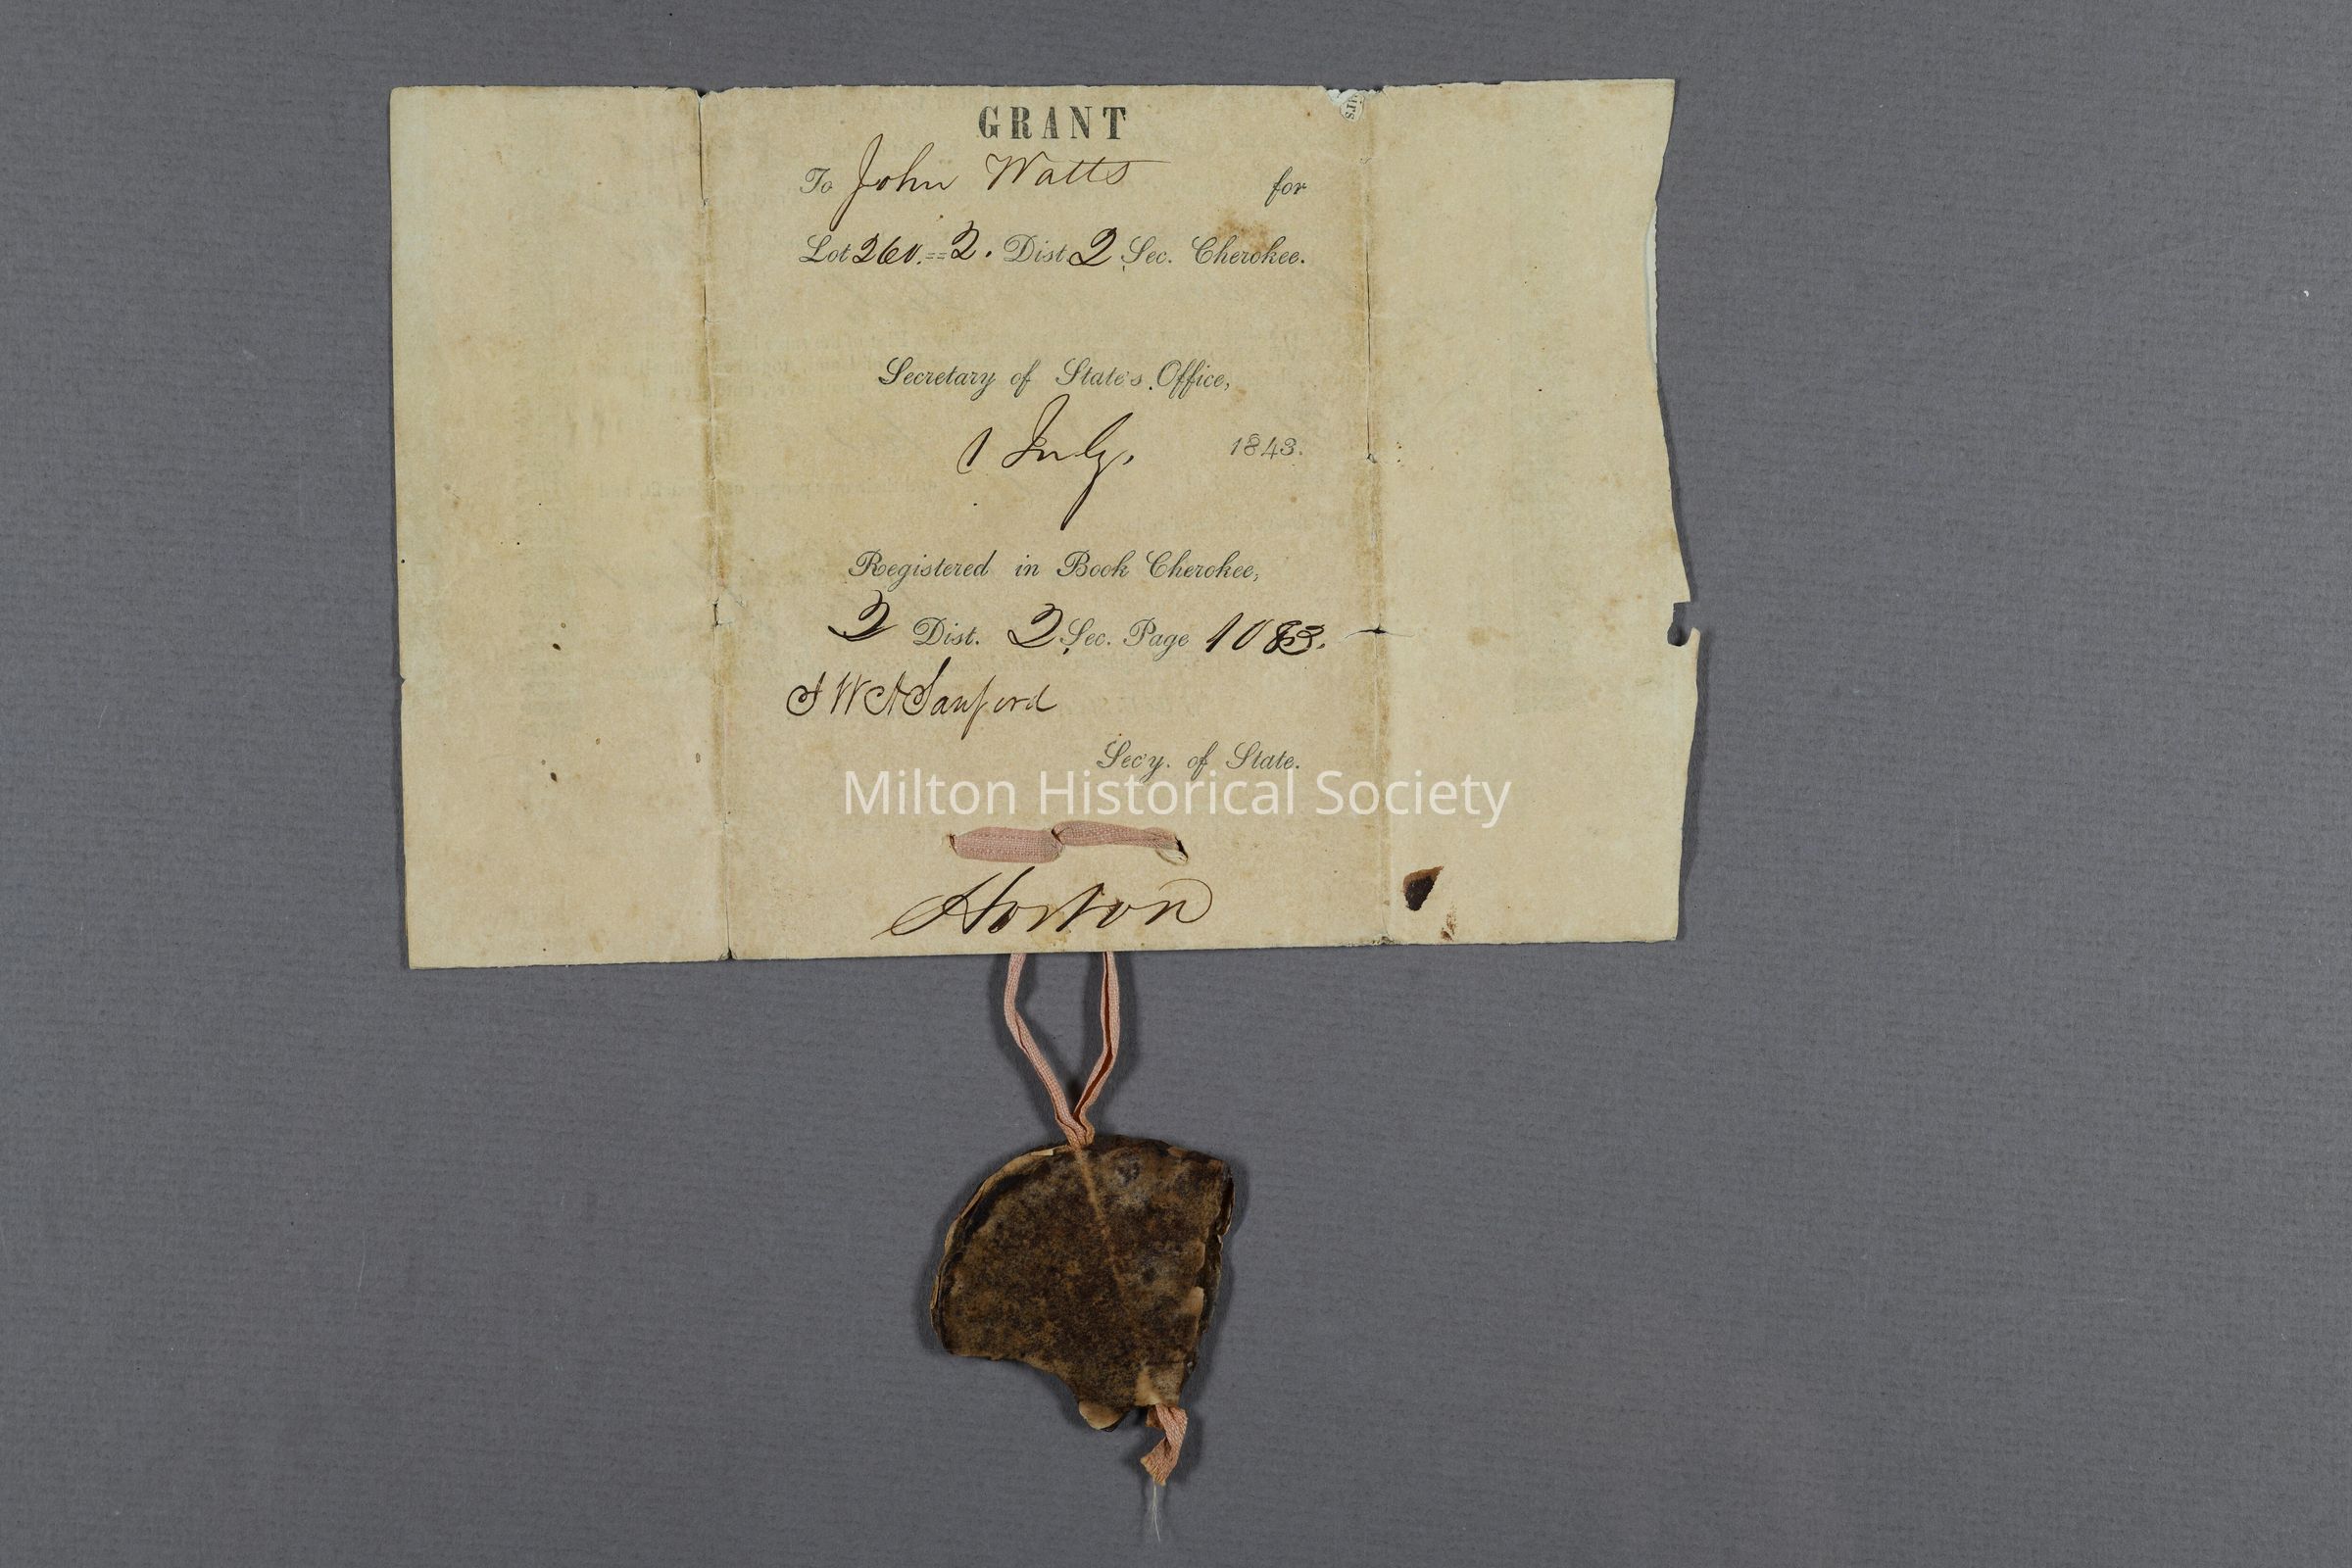 GRANT
To John Watts for
Lot 260.==2. Dist 2 Sec. Cherokee.
Secretary of State's Office,
1 July, 1843.
Registered in Book Cherokee,
2 Dist. 2 Sec. Page 1083.
J W A Sanford
Sec'y. of State.
Milton Historical Society
Horton